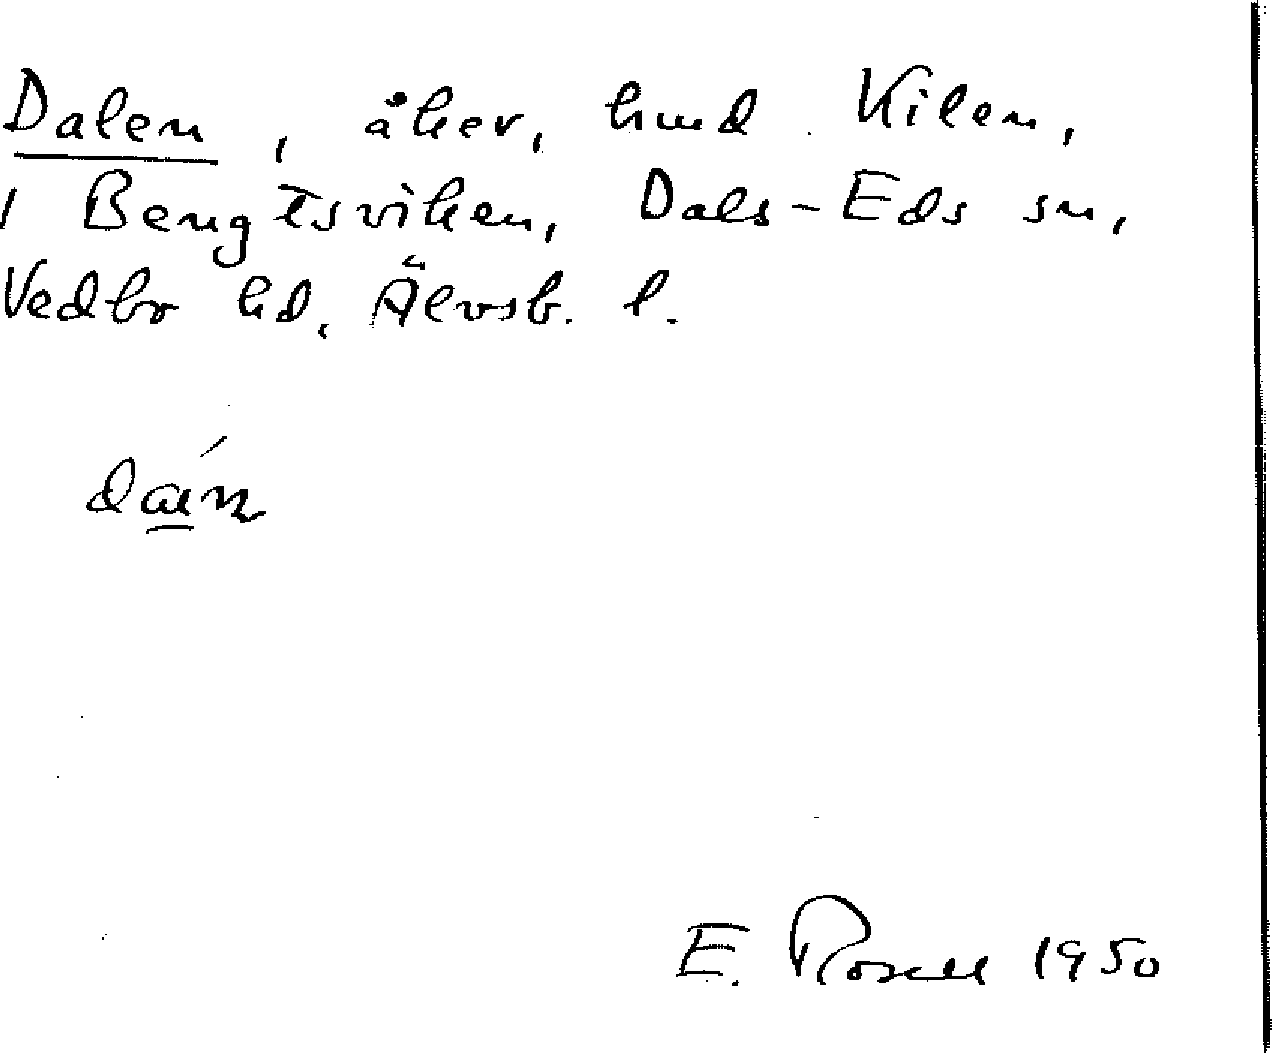 Dalen, åker, hmd Kilen,
i Bengtsviken, Dals-Eds sn,
Vedbo hd, Älvsb. l.
E. Rosell 1950